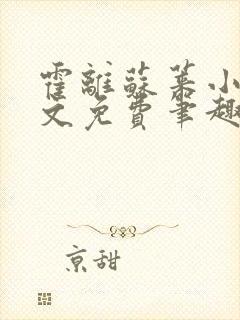 霍離蘇蓁小
文免費筆趣
京甜